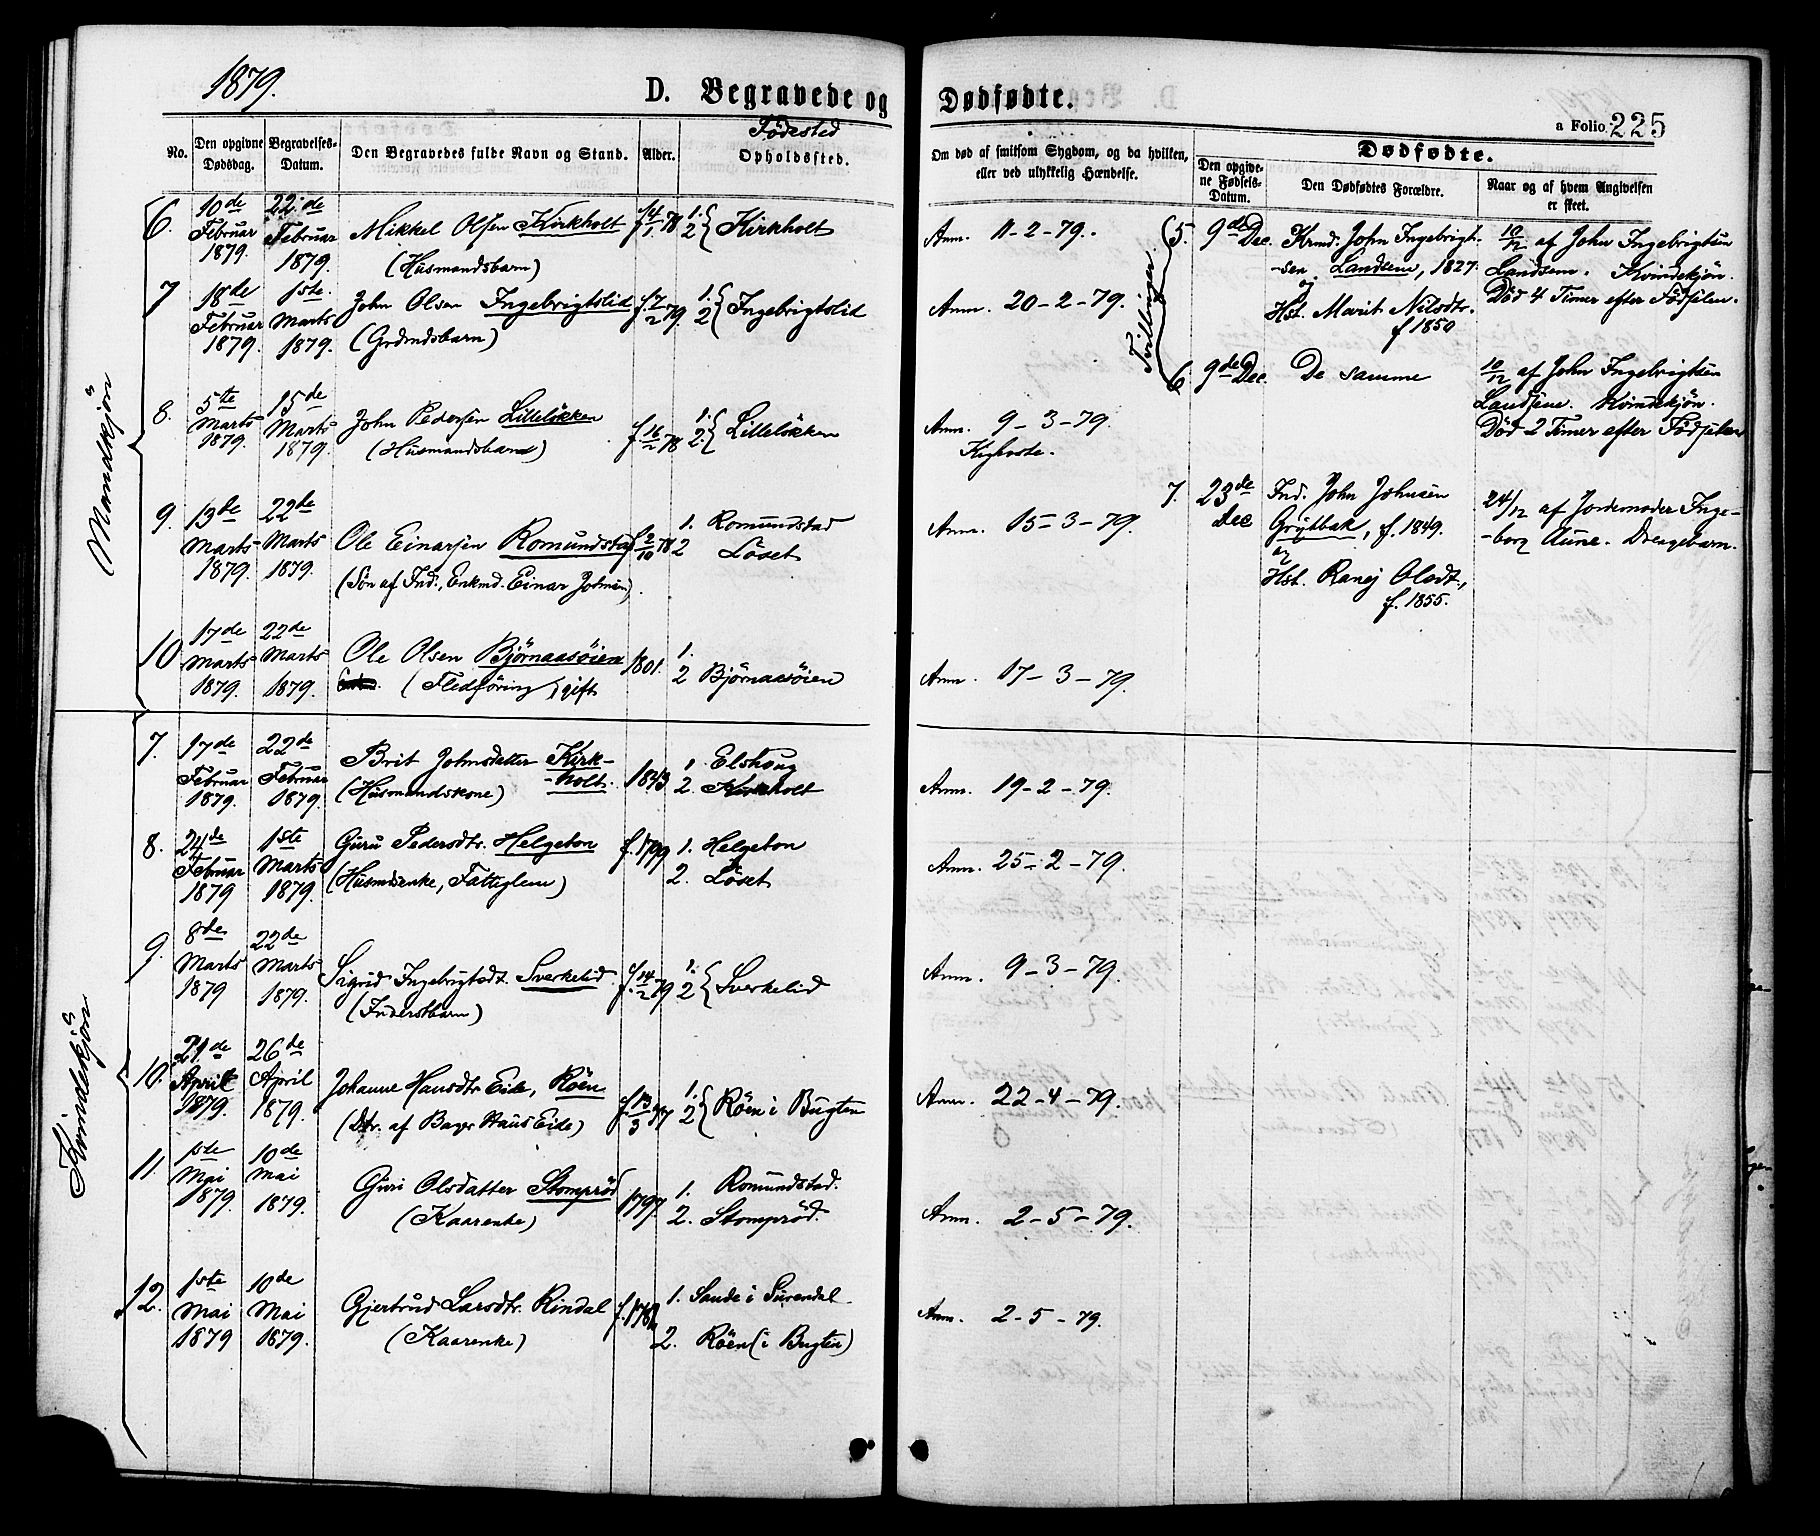 1879.
D. Begravede og Dødfødte.
a Folio 225
No.
Den opgivne Dødsdag.
Begravelses-Datum.
Den Begravedes fulde Navn og Stand.
Alder.
Fødested
Opholdssted.
Om død af smitsom Sygdom, og da hvilken,
eller ved ulykkelig Hændelse.
Dødfødte.
Den opgivne Fødsels-Datum.
Den Dødfødtes Forældre.
Naar og af hvem Angivelsen er skeet.
Mandkjön
6. 10de Februar 1879. 22de Februar 1879. Mikkel Olsen Kirkholt f. 4/1 78 1. 2 { Kirkholt Anm. 11-2-79.
(Husmandsbarn)
7 18de Februar 1879. 1ste Marts 1879. John Olsen Ingebrigtslid f. 7/2 79. 1. 2 { Ingebrigtslid Anm. 20-2-79.
(Grdmdsbarn)
8. 5te Marts 1879. 15de Marts 1879. John Pedersen Lillelökken f. 16/2 78 1. 2. { Lillelökken Anm. 9-3-79.
(Husmandsbarn) Kighoste.
9. 13de Marts 1879. 22de Marts 1879. Ole Einarsen Romundstad f. 2/10 78 1. Romundstad 2 Löset Anm. 15-3-79.
(Sön af Ind., Enkmd. Einar Johnsen).
10 17de Marts 1879. 22de Marts 1879. Ole Olsen Björnaasöien 1801. 1. 2 Björnaasöien Anm. 17-3-79.
(Fledföring) gift
Kvindekjön
7. 17de Februar 1879. 22de Februar 1879. Brit Johnsdatter Kirk-
-holt. 1843 1 Elshoug 2. Kirkholt Anm. 19-2-79.
(Husmandskone)
8. 24de Februar 1879 1ste Marts 1879. Guru Pedersdtr. Helgeton f. 1799 1. Helgeton 2. Löset Anm. 25-2-79.
(Husmdsenke, Fattiglem)
9. 8de Marts 1879 22de Marts 1879. Sigrid Ingebrigtsdt. Sverkelid f. 14/2 79 1. 2 { Sverkelid Anm. 9-3-79.
(Inderstbarn)
10. 21de April 1879. 26de April 1879. Johanne Hansdtr Eide, Röen f. 13/3 77 1. 2 { Röen i Bugten Anm. 22-4-79.
(Dtr. af Bager Hans Eide)
11. 1ste Mai 1879. 10de Mai 1879. Guri Olsdatter Stompröd 1797 1. Romundstad. 2. Stompröd. Anm. 2-5-79.
(Kaarenke)
12. 1ste Mai 1879 10de Mai 1879. Gjertrud Larsdtr. Rindal 1. Sande i Surendal 2. Röen (i Bugten) Anm. 2-5-79.
(Kaarenke)
Tvillinger
5. 9de Dec. Krmd. John Ingebrigt-
-sen Landsem, 1827
og
Hst. Marit Nilsdtr.
f 1850
10/12 af John Ingebrigtsen
Landsem. Kvindekjön.
Död 4 Timer efter Födselen.
6. 9de Dec. De samme
10/12 af John Ingebrigtsen
Landsem. Kvindekjön.
Död 2 Timer efter Födselen
7. 23de Dec Ind. John Johnsen
Grytbak, f. 1849.
og
Hst. Ranej Olsdt.,
f. 1855.
24/12 af Jordemoder Inge-
-borg Aune. Drengebarn.